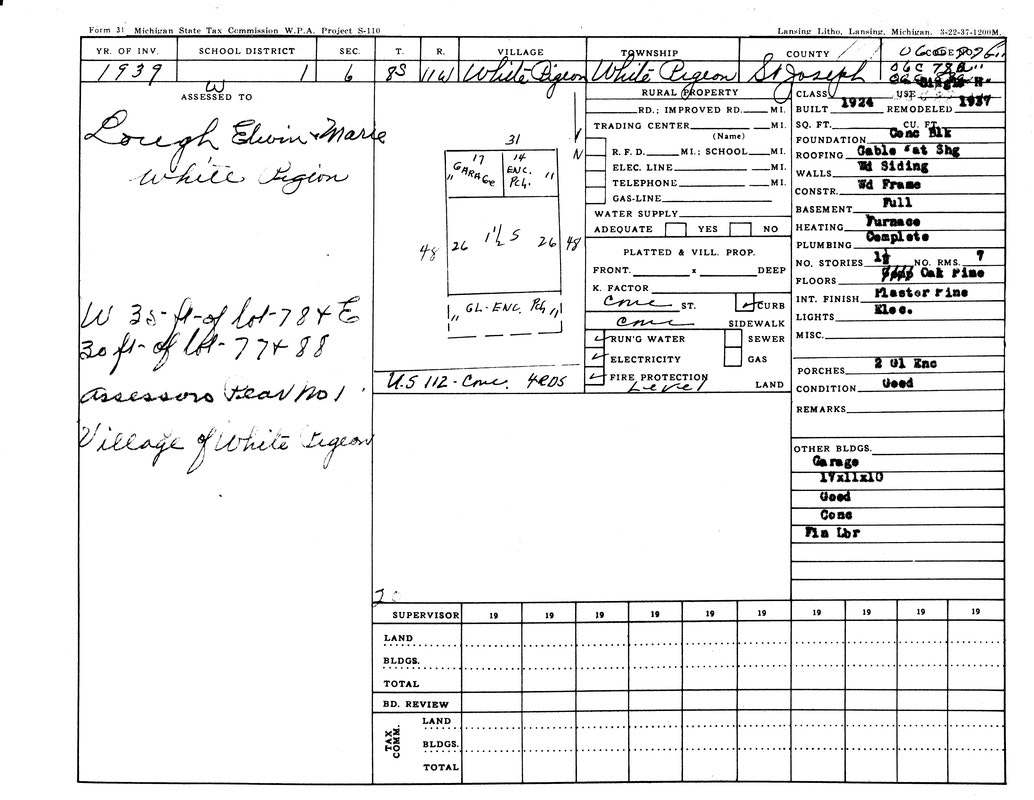 Form 31 Michigan State Tax Commission W.P.A. Project S-110
Lansing Litho, Lansing, Michigan. 3-22-37-1200M.
YR. OF INV. SCHOOL DISTRICT SEC. T. R. VILLAGE TOWNSHIP COUNTY
1939 1 6 8S 11W White Pigeon White Pigeon St Joseph
W
ASSESSED TO
Lough Elwin & Marie
White Pigeon
W 35-ft-of lot-78 & E
30 ft-of lot-77 & 88
Assessors Plat No 1
Village of White Pigeon
31
N
17 GARAGE
14 ENC. PCH.
11 11
48 26 1½ S 26 48
11 GL-ENC. PCH 11
U.S 112 - Conc. 4RDS
RURAL PROPERTY
RD.; IMPROVED RD. MI.
TRADING CENTER MI.
(Name)
R. F. D. MI.; SCHOOL MI.
ELEC. LINE MI.
TELEPHONE MI.
GAS-LINE
WATER SUPPLY
ADEQUATE YES NO
PLATTED & VILL. PROP.
FRONT. x DEEP
K. FACTOR
Conc ST. ✓ CURB
Conc SIDEWALK
✓ RUN'G WATER SEWER
✓ ELECTRICITY GAS
✓ FIRE PROTECTION
Level LAND
CLASS USE
BUILT 1924 REMODELED 1937
SQ. FT. CU. FT.
FOUNDATION Conc Blk
ROOFING Gable Pat Shg
WALLS Wd Siding
CONSTR. Wd Frame
BASEMENT Full
HEATING Furnace
PLUMBING Complete
NO. STORIES 1½ NO. RMS. 7
FLOORS Oak Pine
INT. FINISH Plaster Pine
LIGHTS Elec.
MISC.
PORCHES 2 Gl Enc
CONDITION Good
REMARKS
OTHER BLDGS.
Garage
17x11x10
Good
Conc
Fin Lbr
SUPERVISOR 19 19 19 19 19 19 19 19 19
LAND
BLDGS.
TOTAL
BD. REVIEW
TAX COMM.
LAND
BLDGS.
TOTAL